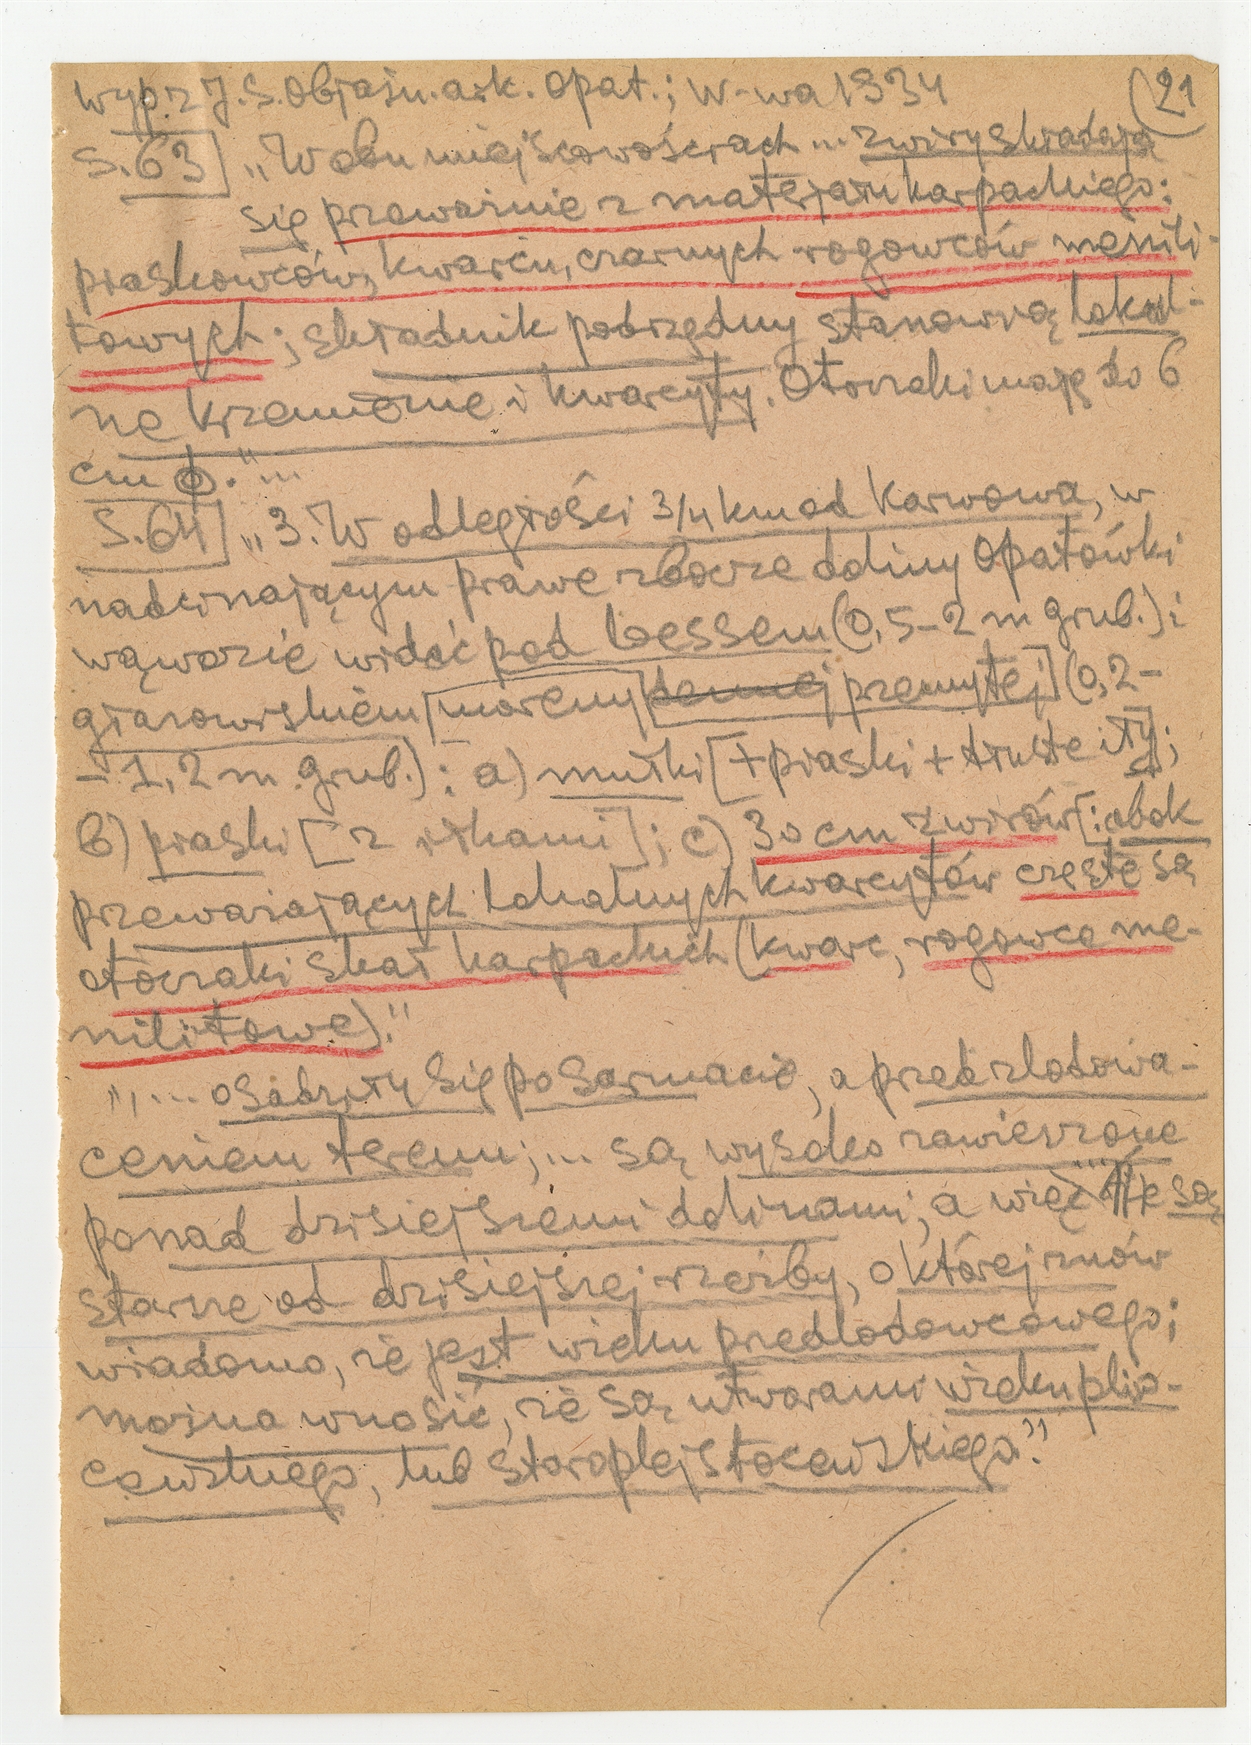 wyp. z J. S. Objaśn. ark. Opat.; W-wa 1934 (21
S. 63] „W obu miejscowościach ... żwiry składają
się przeważnie z materjału karpackiego:
piaskowców, kwarcu, czarnych rogowców menili-
towych; składnik podrzędny stanowią lokal-
ne krzemienie i kwarcyty. Otoczaki mają do 6
cm ϕ."...
S. 64] „3. W odległości 3/4 km od Karwowa, w
nadcinającym prawe zbocze doliny Opatówki
wąwozie widać pod lessem (0,5-2 m grub.) i
głazowiskiem [moreny dennej przemytej] (0,2-
-1,2 m. grub.): a) mułki [+ piaski + tłuste iły];
b) piaski [z iłkami]; c) 30 cm żwirów [: obok
przeważających lokalnych kwarcytów częste są
otoczaki skał karpackich (kwarc, rogowce me-
nilitowe)."
„... osadziły się po sarmacie, a przed zlodowa-
ceniem terenu; ... są wysoko zawieszone
ponad dzisiejszemi dolinami, a więc ... są
starsze od dzisiejszej rzeźby, o której znów
wiadomo, że jest wieku predlodowcowego;
można wnosić, że są utworami wieku plio-
ceńskiego, lub staroplejstoceńskiego."